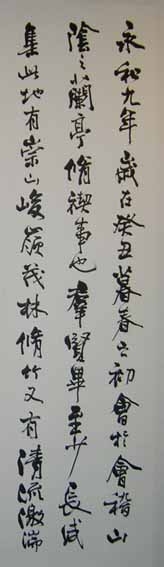 永和九年歳在癸丑暮春之初會於會稽山
陰之蘭亭脩禊事也羣賢畢至少長咸
集此地有崇山峻嶺茂林脩竹又有清流激湍